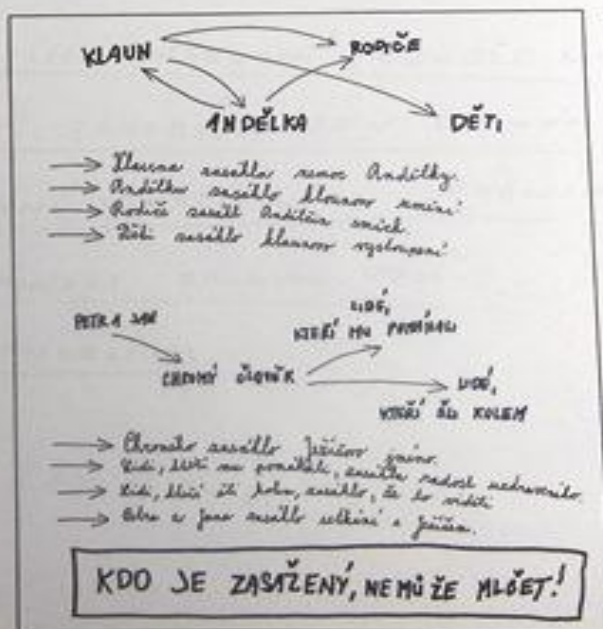 KLAUN RODIČE
ANDĚLKA DĚTI
Klauna zasáhla nemoc Andělky.
Andělku zasáhlo klaunovo umění
Rodiče zasáhl Andělčin smích.
Děti zasáhlo klaunovo vystoupení
PETR A JAN
LIDÉ,
KTEŘÍ MU POMÁHALI
CHROMÝ ČLOVĚK
LIDÉ,
KTEŘÍ ŠLI KOLEM
Chromého zasáhlo Ježíšovo jméno.
Lidi, kteří mu pomáhali, zasáhla radost uzdraveného.
Lidi, kteří šli kolem, zasáhlo, že to viděli
Petra a Jana zasáhlo setkání s Ježíšem.
KDO JE ZASAŽENÝ, NEMŮŽE MLČET!